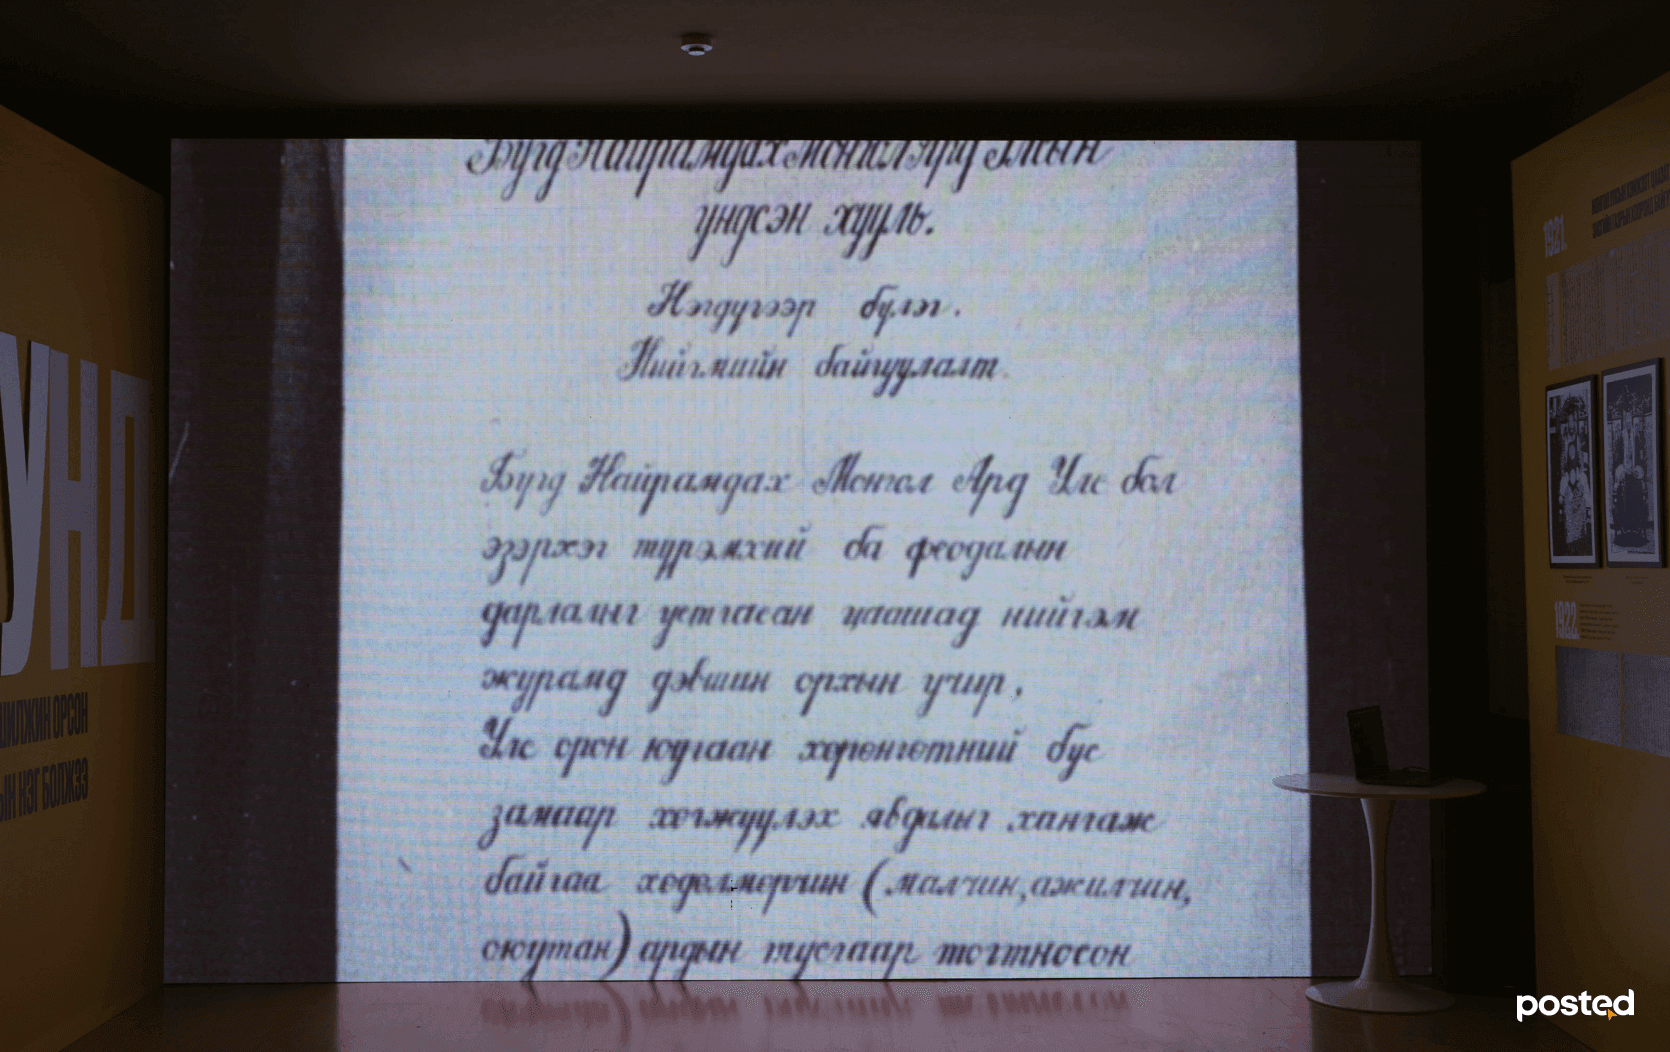 Бүгд Найрамдах Монгол Ард Улсын
үндсэн хууль.
Нэгдүгээр бүлэг.
Нийгмийн байгуулалт.
Бүгд Найрамдах Монгол Ард Улс бол
эзэрхэг түрэмхий ба феодалын
дарлалыг устгасан цаашад нийгэм
журамд дэвшин орхын учир,
Улс орон юугаан хөрөнгөтний бус
замаар хөгжүүлэх явдалыг хангаж
байгаа хөдөлмөрчин (малчин, ажилчин,
оюутан) ардын тусгаар тогтносон
УНД
ШИЛЖИН ОРСОН
ЫН НЭГ БОЛЖЭЭ
1921.
1922.
posted